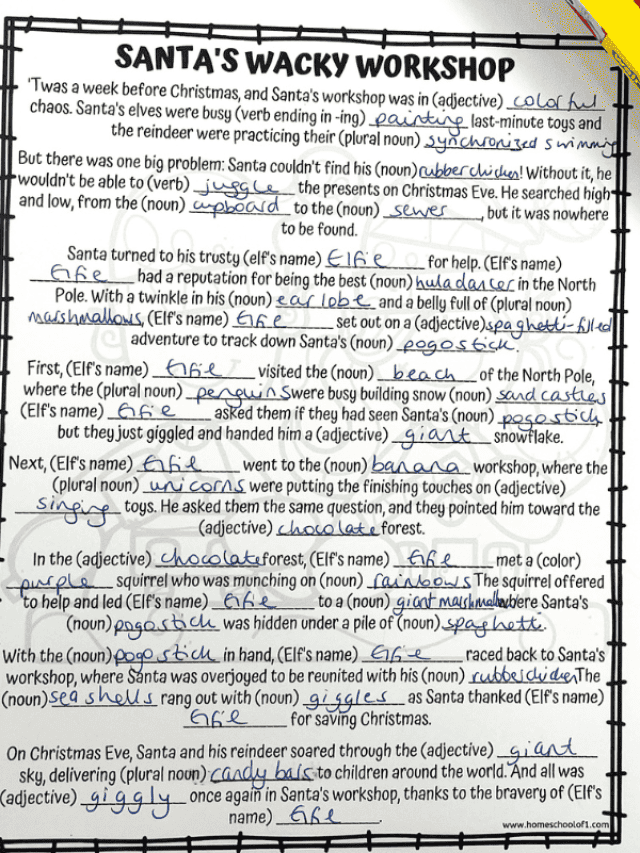 SANTA'S WACKY WORKSHOP
'Twas a week before Christmas, and Santa's workshop was in (adjective) colorful
chaos. Santa's elves were busy (verb ending in -ing) painting last-minute toys and
the reindeer were practicing their (plural noun) synchronized swimming
But there was one big problem: Santa couldn't find his (noun) rubber chicken! Without it, he
wouldn't be able to (verb) juggle the presents on Christmas Eve. He searched high
and low, from the (noun) cupboard to the (noun) sewer, but it was nowhere
to be found.
Santa turned to his trusty (elf's name) Elfie for help. (Elf's name)
Elfie had a reputation for being the best (noun) hula dancer in the North
Pole. With a twinkle in his (noun) ear lobe and a belly full of (plural noun)
marshmallows, (Elf's name) Elfie set out on a (adjective) spaghetti-filled
adventure to track down Santa's (noun) pogo stick.
First, (Elf's name) Elfie visited the (noun) beach of the North Pole,
where the (plural noun) penguins were busy building snow (noun) sand castles
(Elf's name) Elfie asked them if they had seen Santa's (noun) pogo stick
but they just giggled and handed him a (adjective) giant snowflake.
Next, (Elf's name) Elfie went to the (noun) banana workshop, where the
(plural noun) unicorns were putting the finishing touches on (adjective)
singing toys. He asked them the same question, and they pointed him toward the
(adjective) chocolate forest.
In the (adjective) chocolate forest, (Elf's name) Elfie met a (color)
purple squirrel who was munching on (noun) rainbows The squirrel offered
to help and led (Elf's name) Elfie to a (noun) giant marshmallow where Santa's
(noun) pogo stick was hidden under a pile of (noun) spaghetti.
With the (noun) pogo stick in hand, (Elf's name) Elfie raced back to Santa's
workshop, where Santa was overjoyed to be reunited with his (noun) rubber chicken The
(noun) sea shells rang out with (noun) giggles as Santa thanked (Elf's name)
Elfie for saving Christmas.
On Christmas Eve, Santa and his reindeer soared through the (adjective) giant
sky, delivering (plural noun) candy bars to children around the world. And all was
(adjective) giggly once again in Santa's workshop, thanks to the bravery of (Elf's
name) Elfie.
www.homeschoolof1.com